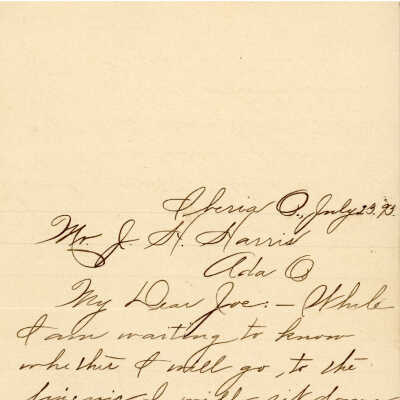 Iberia O., July 23, '93.
Mr. J. H. Harris
Ada O
My Dear Joe: – While
I am waiting to know
whether I will go, to the
I will sit down